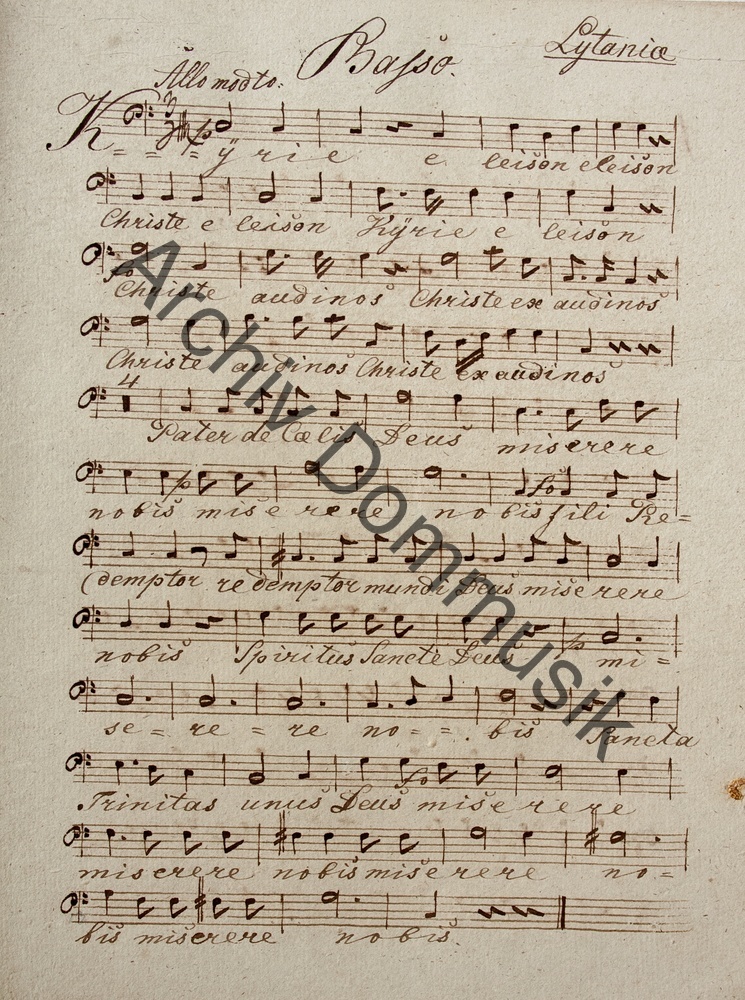 Lytaniæ
Basso.
Allo modto:
Kÿrie e leison eleison
Christe e leison Kÿrie e leison
Christe audinos Christe ex audinos
Christe audinos Christe ex audinos
4
Pater de Cœlis Deus miserere
nobis miserere nobis fili Re=
demptor redemptor mundi Deus miserere
nobis Spiritus Sancte Deus mi=
se=re=re no==bis Sancta
Trinitas unus Deus miserere
miserere nobis miserere no=
bis miserere nobis.
Archiv Dommusik